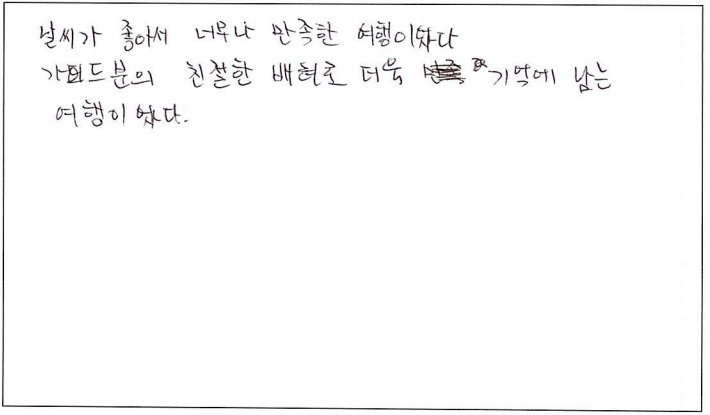 날씨가 좋아서 너무나 만족한 여행이었다
가이드분의 친절한 배려로 더욱 더 기억에 남는
여행이었다.